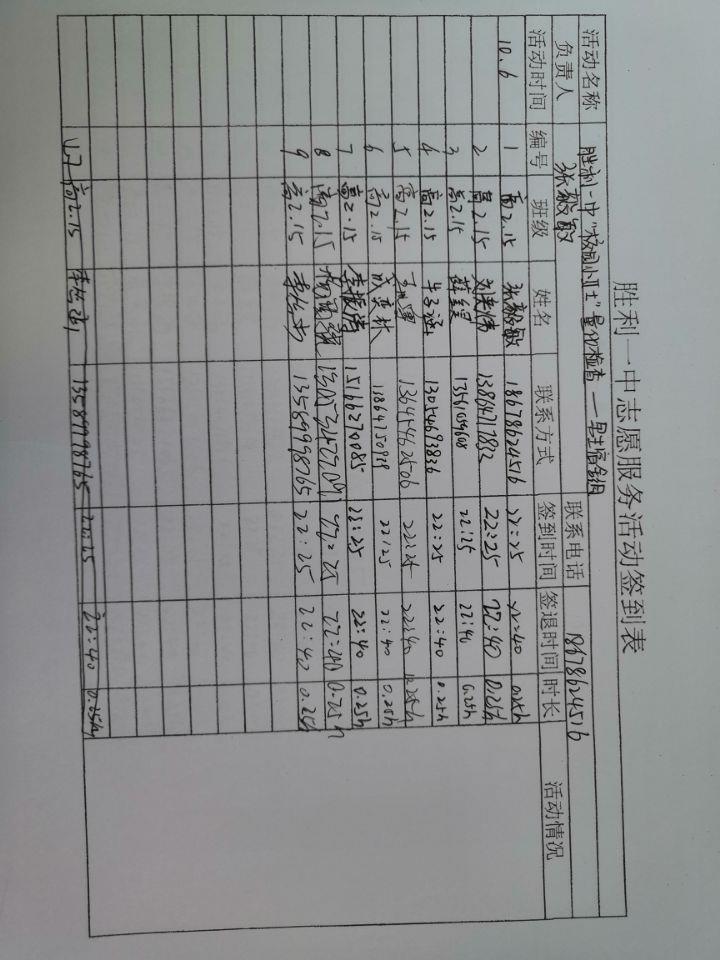 胜利一中志愿服务活动签到表
活动名称 胜利一中"校园小卫士"量化检查——男生宿舍组
负责人 张毅敏 联系电话 18678624516
活动时间 编号 班级 姓名 联系方式 签到时间 签退时间 时长 活动情况
10.6 1 高2.15 张毅敏 18678624516 22:25 22:40 0.25h
2 高2.15 13864717832 22:25 22:40 0.25h
3 高2.15 薛绥 22:25 22:40 0.25h
4 高2.15 13054693836 22:25 22:40 0.25h
5 高2.15 13645462506 22:25 22:40 0.25h
6 高2.15 22:25 22:40 0.25h
7 高2.15 李振涛 15166270085 22:25 22:40 0.25h
8 高2.15 22:25 22:40 0.25h
9 高2.15 13589998765 22:25 22:40 0.25h
高2.15 13589998765 22:25 22:40 0.25h